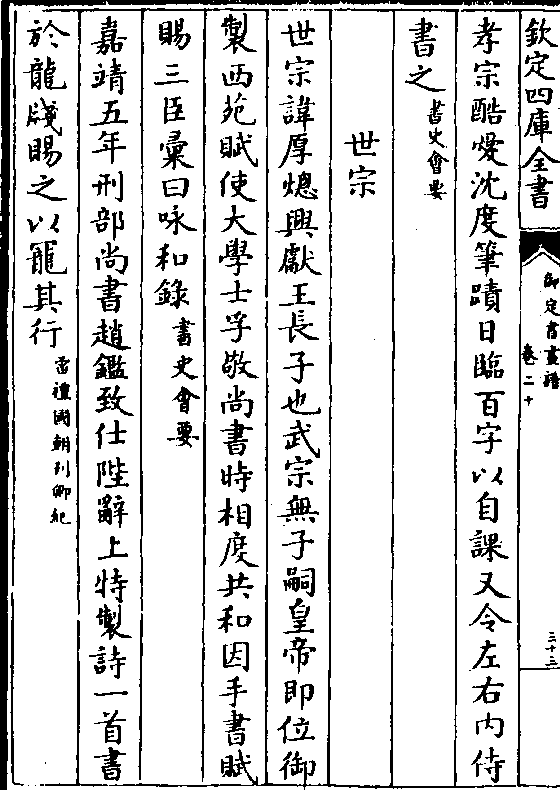 欽定四庫全書
御定書畫譜
卷二十
三十三
孝宗酷愛沈度筆蹟日臨百字以自課又令左右内侍
書之書史會要
世宗
世宗諱厚熜興獻王長子也武宗無子嗣皇帝即位御
製西苑賦使大學士孚敬尚書時相度共和因手書賦
賜三臣彚曰咏和錄書史會要
嘉靖五年刑部尚書趙鑑致仕陛辭上特製詩一首書
於龍牋賜之以寵其行雷禮國朝列卿紀